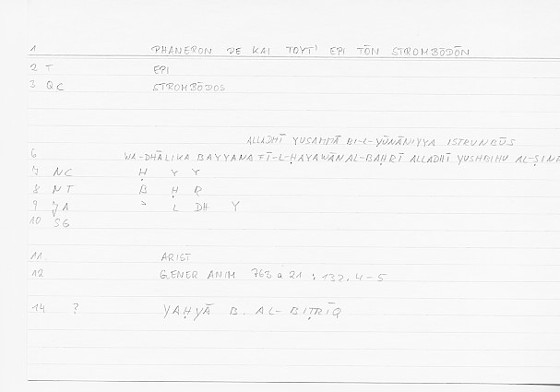 1 PHANERON DE KAI TOYT' EPI TŌN STROMBŌDŌN
2 T EPI
3 QC STROMBŌDOS
ALLADHĪ YUSAMMĀ BI-L-YŪNĀNIYYA ISTRUNBŪS
6 WA-DHĀLIKA BAYYANA FĪ-L-ḤAYAWĀN AL-BAḤRĪ ALLADHĪ YUSHBIHU AL-ṢINA
7 NC Ḥ Y Y
8 MT B Ḥ R
9 JA ʾ L DH Y
10 SG
11 ARIST
12 GENER ANIM 763 a 21 ; 132. 4-5
14 ? YAḤYĀ B. AL-BIṬRĪQ